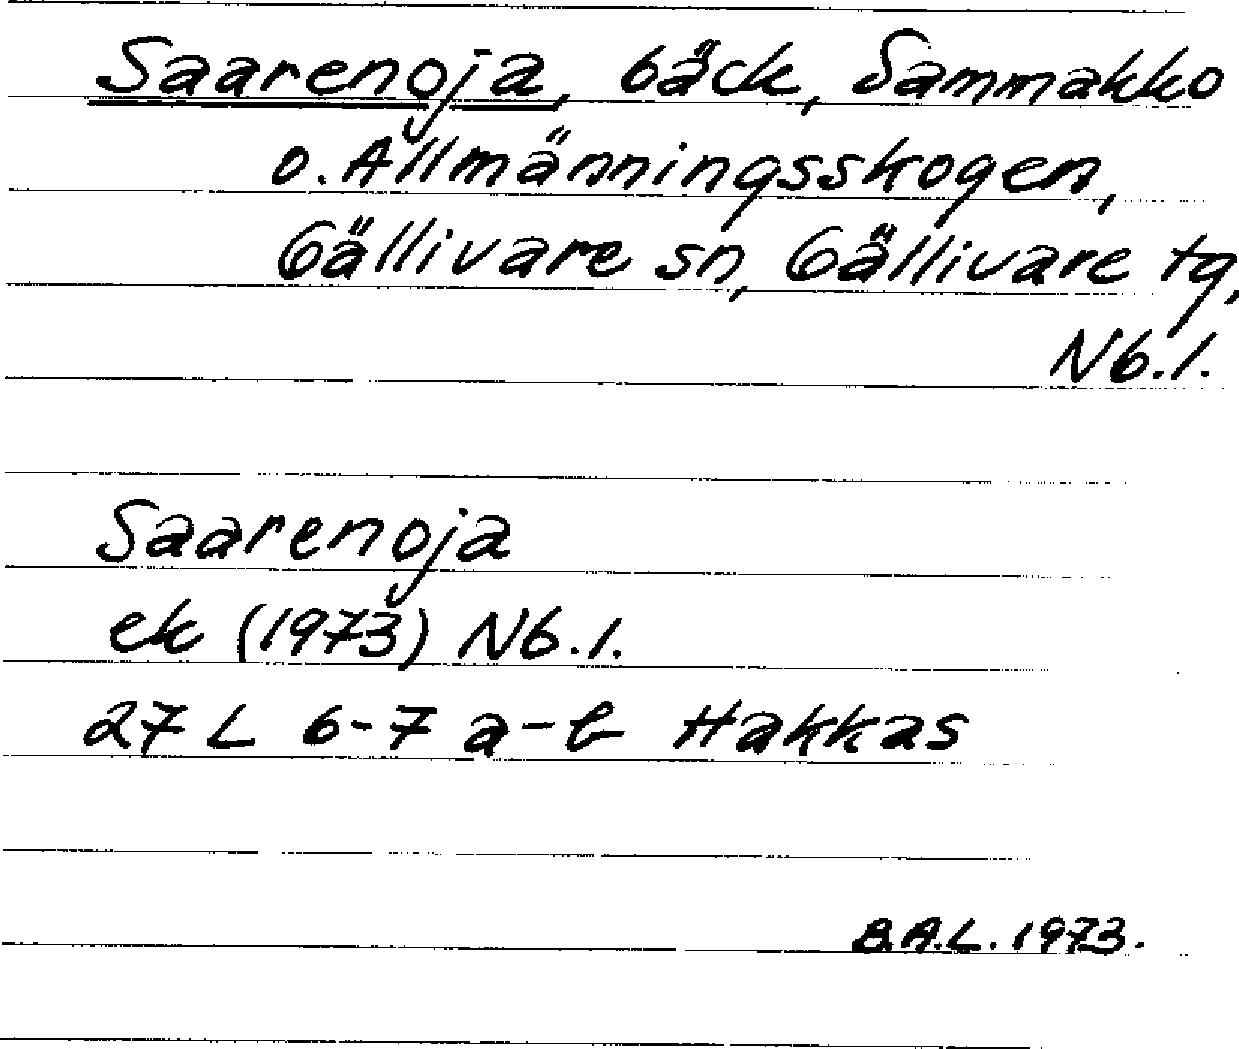 Saarenoja, bäck, Sammakko
o. Allmänningsskogen,
Gällivare sn, Gällivare tg,
Nb.l.
Saarenoja
ek (1973) Nb.l.
27 L 6-7 a-b Hakkas
B.A.L. 1973.